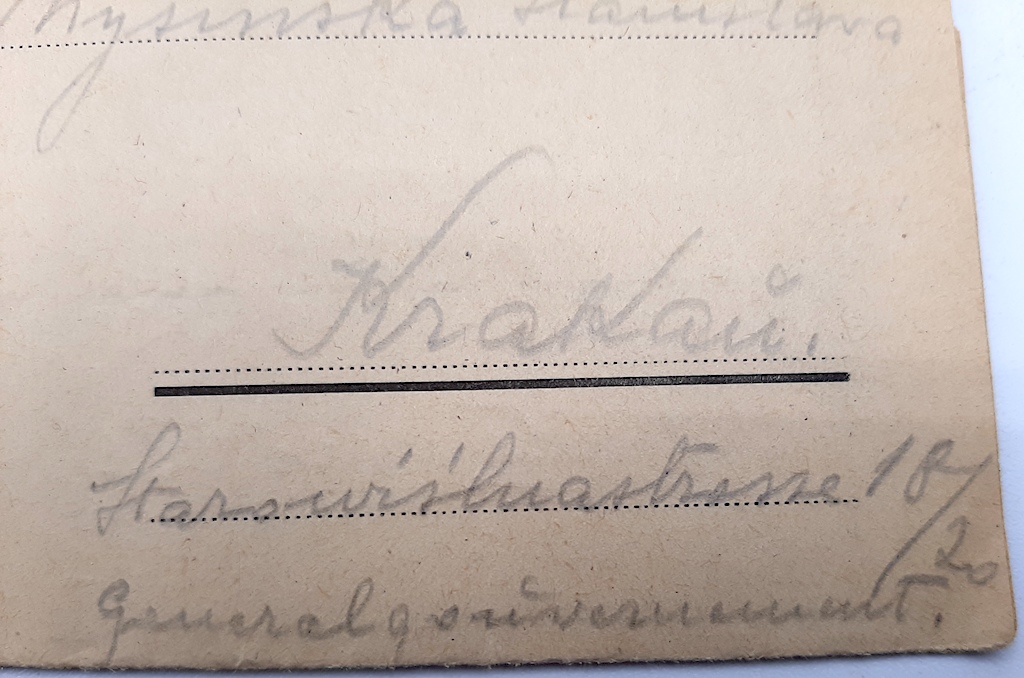 Stanisława
Krakau.
Starowiślnastrasse 18/20
Generalgouvernement.